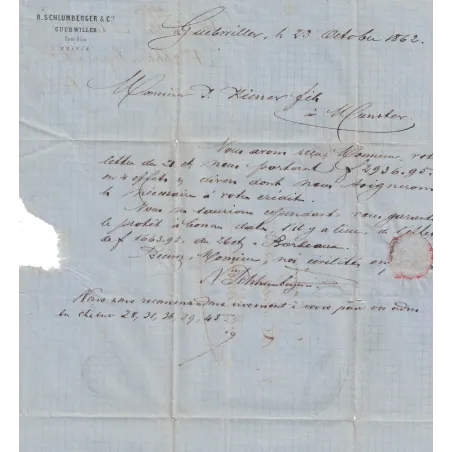 N. SCHLUMBERGER & Cie
GUEBWILLER
Haut-Rhin
FRANCE
Guebwiller, le 23 Octobre 1862.
Monsieur fils
à Munster
Vous avons reçu, Monsieur, votre
lettre du 21 ct, nous portant f 2936.95.
en 4 effets divers dont nous soignerons
le nécessaire à votre crédit.
Nous ne saurions cependant vous garantir
le protêt à bonne date, s'il y a lieu, de l'effet
de f 1063.95. du 26 ct, Bordeaux.
Monsieur, nos civilités
N. Schlumberger
Nous nous recommandons vivement à vous pour vos ordres
en chaîne 28, 31, 36, 39, 45